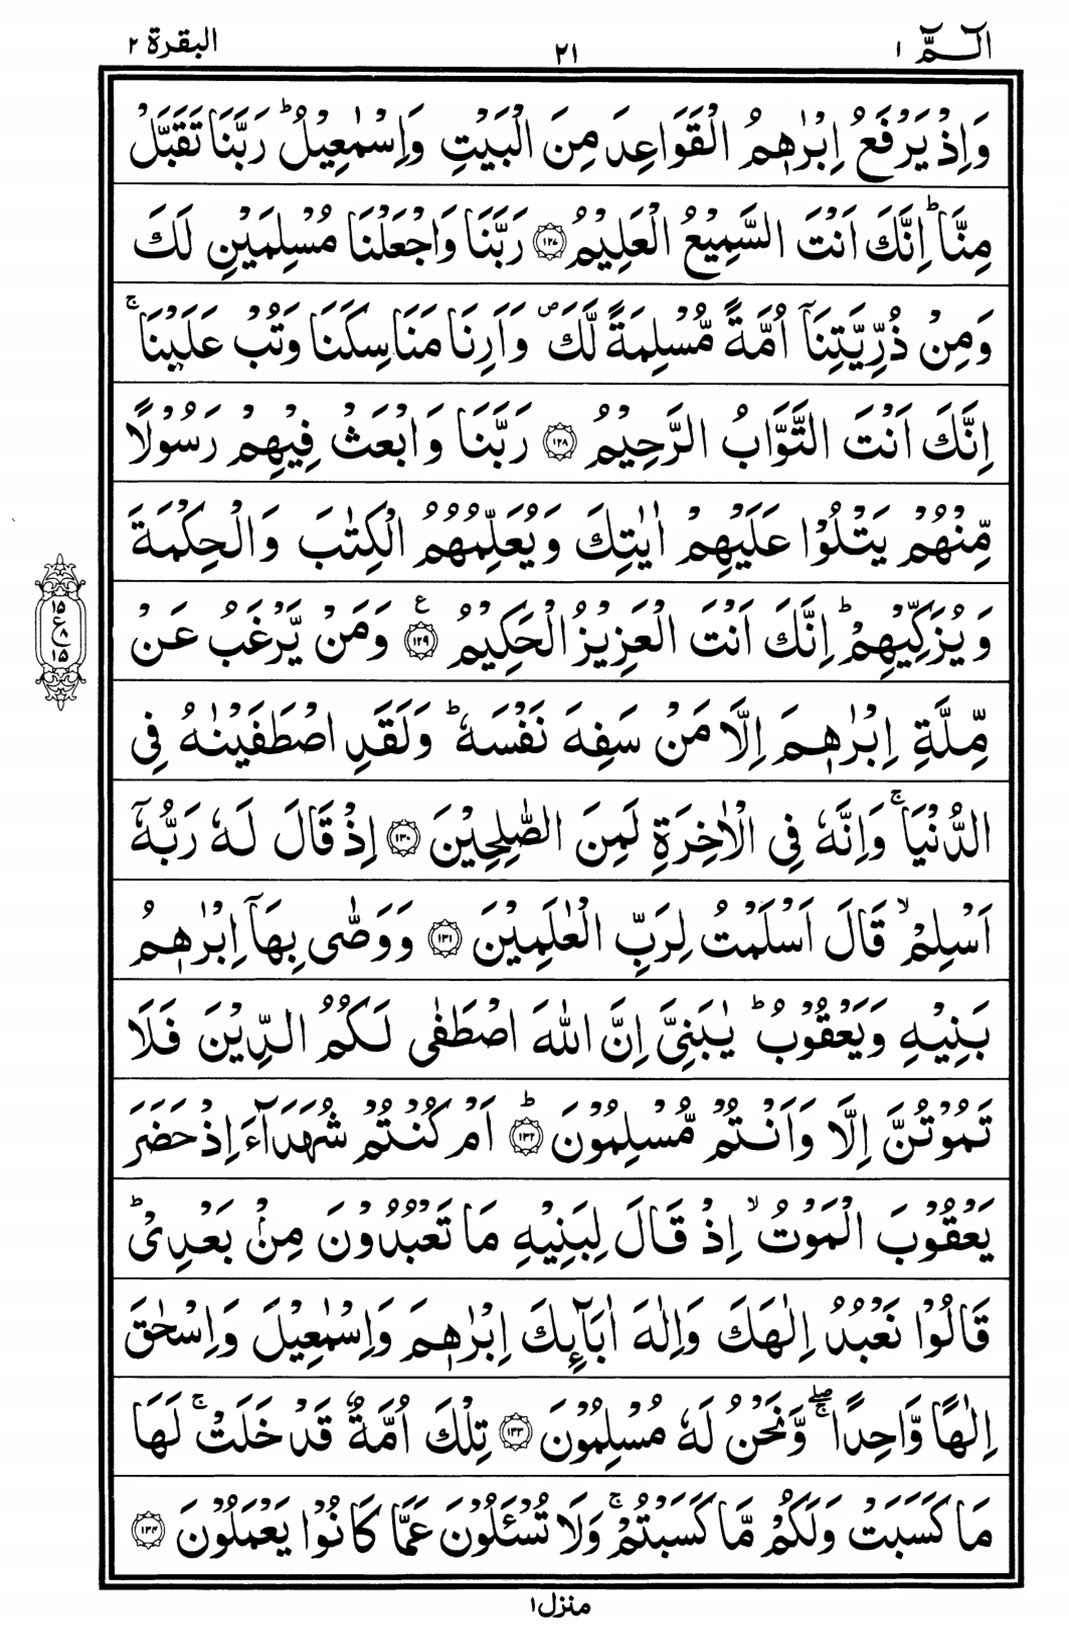 الٓـمّٓ ١
٢١
البقرة ٢
وَاِذۡ يَرۡفَعُ اِبۡرٰهٖمُ الۡقَوَاعِدَ مِنَ الۡبَيۡتِ وَاِسۡمٰعِيۡلُ ؕ رَبَّنَا تَقَبَّلۡ
مِنَّا ؕ اِنَّكَ اَنۡتَ السَّمِيۡعُ الۡعَلِيۡمُ ﴿۱۲۷﴾ رَبَّنَا وَاجۡعَلۡنَا مُسۡلِمَيۡنِ لَكَ
وَمِنۡ ذُرِّيَّتِنَاۤ اُمَّةً مُّسۡلِمَةً لَّكَ ۪ وَاَرِنَا مَنَاسِكَنَا وَتُبۡ عَلَيۡنَا ۚ
اِنَّكَ اَنۡتَ التَّوَّابُ الرَّحِيۡمُ ﴿۱۲۸﴾ رَبَّنَا وَابۡعَثۡ فِيۡهِمۡ رَسُوۡلًا
مِّنۡهُمۡ يَتۡلُوۡا عَلَيۡهِمۡ اٰيٰتِكَ وَيُعَلِّمُهُمُ الۡكِتٰبَ وَالۡحِكۡمَةَ
وَيُزَكِّيۡهِمۡ ؕ اِنَّكَ اَنۡتَ الۡعَزِيۡزُ الۡحَكِيۡمُ ﴿۱۲۹﴾ ع وَمَنۡ يَّرۡغَبُ عَنۡ
مِّلَّةِ اِبۡرٰهٖمَ اِلَّا مَنۡ سَفِهَ نَفۡسَهٗ ؕ وَلَقَدِ اصۡطَفَيۡنٰهُ فِى
الدُّنۡيَا ۚ وَاِنَّهٗ فِى الۡاٰخِرَةِ لَمِنَ الصّٰلِحِيۡنَ ﴿۱۳۰﴾ اِذۡ قَالَ لَهٗ رَبُّهٗۤ
اَسۡلِمۡ ۙ قَالَ اَسۡلَمۡتُ لِرَبِّ الۡعٰلَمِيۡنَ ﴿۱۳۱﴾ وَوَصّٰى بِهَاۤ اِبۡرٰهٖمُ
بَنِيۡهِ وَيَعۡقُوۡبُ ؕ يٰبَنِىَّ اِنَّ اللّٰهَ اصۡطَفٰى لَـكُمُ الدِّيۡنَ فَلَا
تَمُوۡتُنَّ اِلَّا وَاَنۡتُمۡ مُّسۡلِمُوۡنَ ؕ ﴿۱۳۲﴾ اَمۡ كُنۡتُمۡ شُهَدَآءَ اِذۡ حَضَرَ
يَعۡقُوۡبَ الۡمَوۡتُ ۙ اِذۡ قَالَ لِبَنِيۡهِ مَا تَعۡبُدُوۡنَ مِنۡۢ بَعۡدِىۡ ؕ
قَالُوۡا نَعۡبُدُ اِلٰهَكَ وَاِلٰهَ اٰبَآٮِٕكَ اِبۡرٰهٖمَ وَاِسۡمٰعِيۡلَ وَاِسۡحٰقَ
اِلٰهًا وَّاحِدًا ۖۚ وَّنَحۡنُ لَهٗ مُسۡلِمُوۡنَ ﴿۱۳۳﴾ تِلۡكَ اُمَّةٌ قَدۡ خَلَتۡ ۚ لَهَا
مَا كَسَبَتۡ وَلَـكُمۡ مَّا كَسَبۡتُمۡ ۚ وَلَا تُسۡــَٔلُوۡنَ عَمَّا كَانُوۡا يَعۡمَلُوۡنَ ﴿۱۳۴﴾
١٥
ع ٨
١٥
منزل ١